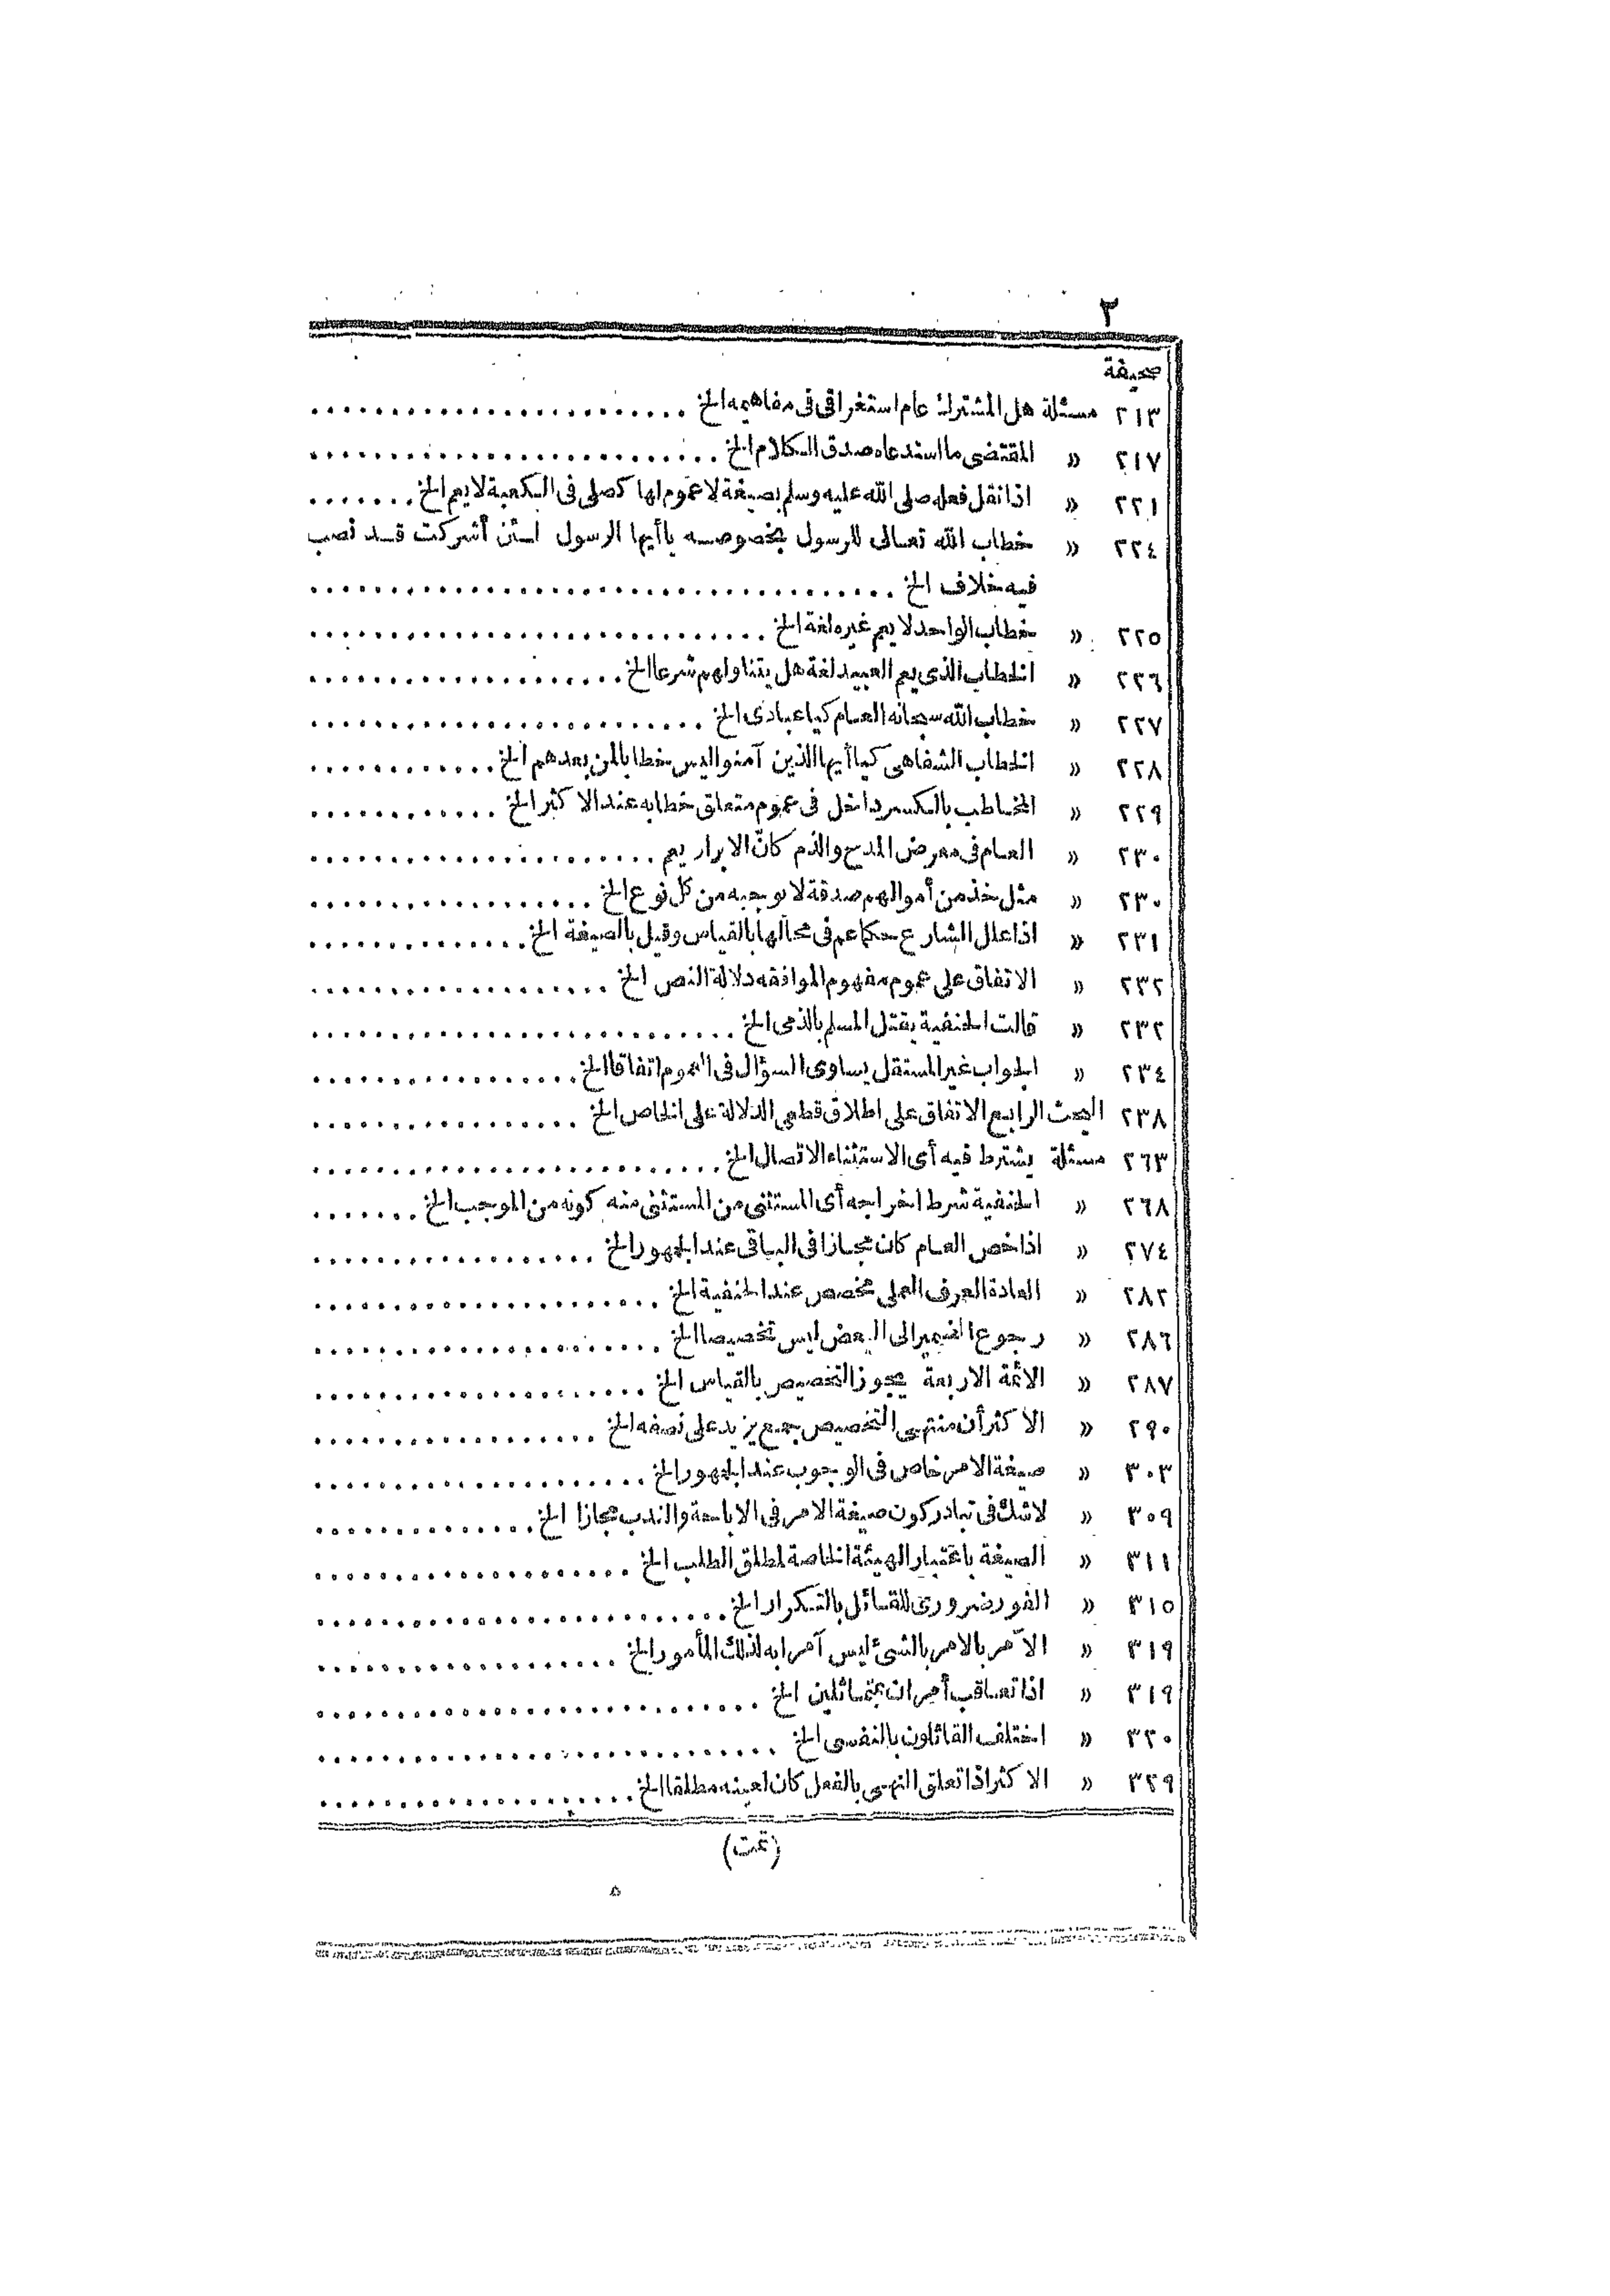 ٣
صحيفة
٢١٣ مسئلة هل المشترك عام استغراقى فى مفاهيمه الخ
٢١٧ » المقتضى ما استدعاه صدق الكلام الخ
٢٢١ » اذا نقل فعله صلى الله عليه وسلم بصيغة لا عموم لها كصلى فى الكعبة لا يعم الخ
٢٢٤ » خطاب الله تعالى للرسول بخصوصه يا أيها الرسول لئن أشركت قد نصب
فيه خلاف الخ
٢٢٥ » خطاب الواحد لا يعم غيره لغة الخ
٢٢٦ » الخطاب الذى يعم العبيد لغة هل يتناولهم شرعا الخ
٢٢٧ » خطاب الله سبحانه العام كيا عبادى الخ
٢٢٨ » الخطاب الشفاهى كيا أيها الذين آمنوا ليس خطابا لمن بعدهم الخ
٢٢٩ » المخاطب بالكسر داخل فى عموم متعلق خطابه عند الاكثر الخ
٢٣٠ » العام فى معرض المدح والذم كانّ الابرار يعم
٢٣٠ » مثل خذ من أموالهم صدقة لا يوجبه من كل نوع الخ
٢٣١ » اذا علل الشارع حكما عم فى محالها بالقياس وقيل بالصيغة الخ
٢٣٢ » الاتفاق على عموم مفهوم الموافقه دلالة النص الخ
٢٣٢ » قالت الحنفية يقتل المسلم بالذمى الخ
٢٣٤ » الجواب غير المستقل يساوى السؤال فى العموم اتفاقا الخ
٢٣٨ البحث الرابع الاتفاق على اطلاق قطعى الدلالة على الخاص الخ
٢٦٣ مسئلة يشترط فيه أى الاستثناء الاتصال الخ
٢٦٨ » الحنفية شرط اخراجه أى المستثنى من المستثنى منه كونه من الموجب الخ
٢٧٤ » اذا خص العام كان مجازا فى الباقى عند الجمهور الخ
٢٨٢ » العادة العرف العملى مخصص عند الحنفية الخ
٢٨٦ » رجوع الضمير الى البعض ليس تخصيصا الخ
٢٨٧ » الائمة الاربعة يجوز التخصيص بالقياس الخ
٢٩٠ » الاكثر أن منتهى التخصيص جمع يزيد على نصفه الخ
٣٠٣ » صيغة الامر خاص فى الوجوب عند الجمهور الخ
٣٠٩ » لا شك فى تبادر كون صيغة الامر فى الاباحة والندب مجازا الخ
٣١١ » الصيغة باعتبار الهيئة الخاصة لمطلق الطلب الخ
٣١٥ » الفور ضرورى للقائل بالتكرار الخ
٣١٩ » الآمر بالامر بالشئ ليس آمرا به لذلك المأمور الخ
٣١٩ » اذا تعاقب أمران بمتماثلين الخ
٣٢٠ » اختلف القائلون بالنفسى الخ
٣٢٩ » الاكثر اذا تعلق النهى بالفعل كان لعينه مطلقا الخ
(تمت)